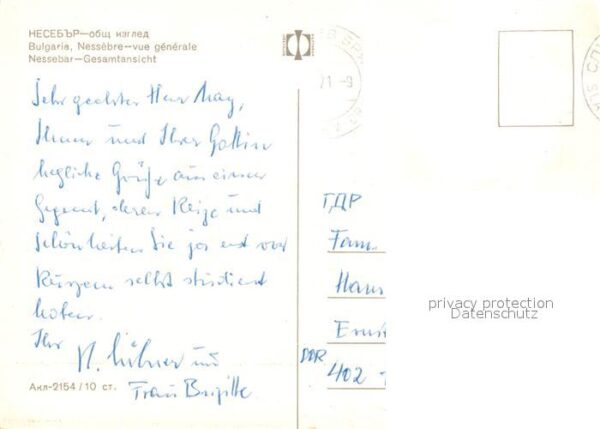 НЕСЕБЪР—общ изглед
Bulgaria, Nessèbre—vue générale
Nessebar—Gesamtansicht
Sehr geehrter Herr May,
Ihnen und Ihrer Gattin
herzliche Grüße aus einer
Gegend, deren Reize und
Schönheiten Sie ja erst vor
Kurzem selbst studiert
haben.
Ihr
und
Frau Brigitte
Акл-2154/10 ст.
ГДР
Fam.
Hans
Ernst
DDR
402
privacy protection
Datenschutz